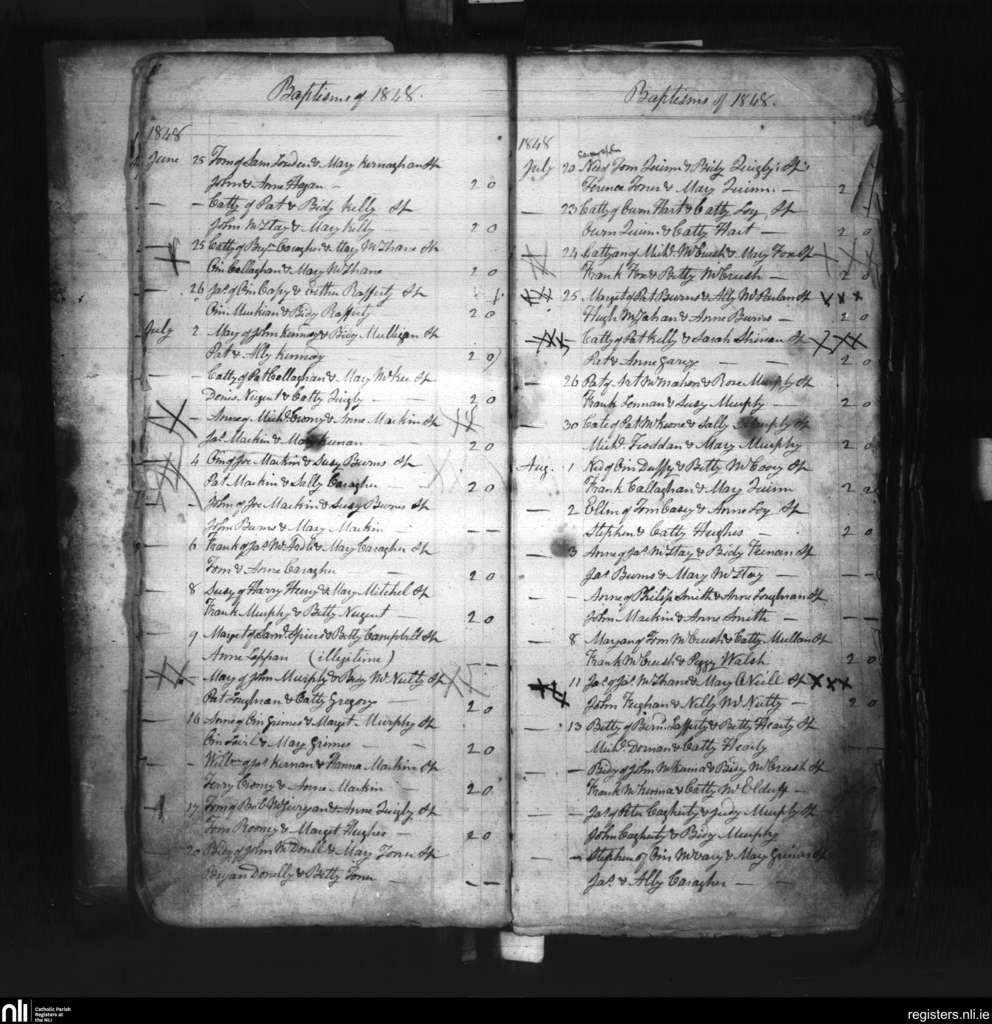 Baptisms of 1848.
1848
June 25 Tom of Sam Louden & Mary Kernaghan Sp
John & Anne Hagan — 2 0
— — Catty of Pat & Bidy Kelly Sp
John McStay & Mary Kelly 2 0
— 25 Catty of Bryn Caragher & Mary McShane Sp
Oin Callaghan & Mary McShane 2 0
— 26 Jas of Oin Casey & Esther Rafferty Sp
Oin & Bidy Rafferty 2 0
July 2 Mary of John Kennoy & Bidy Mulligan Sp
Pat & Ally Kennoy 2 0
— — Catty of Pat Callaghan & Mary McKee Sp
Denis Nugent & Catty Quigly — 2 0
— Anne of Michl Croney & Anne Mackin Sp
Jas Mackin & Mary Keenan — 2 0
4 Oin of Joe Mackin & Susy Burns Sp
Pat Mackin & Sally Caragher — 2 0
— John of Joe Mackin & Susy Burns Sp
John Burns & Mary Mackin — —
— 6 Frank of Jas & Mary Caragher Sp
Tom & Anne Caragher — 2 0
— 8 Susy of Harry Henry & Mary Mitchel Sp
Frank Murphy & Betty Nugent — 2 0
— 9 Marget of Saml & Betty Campbell Sp
Anne Lappan (illegitime) — —
— Mary of John Murphy & Bidy McNulty Sp
Pat Loughran & Catty Gregory — 2 0
— 16 Anne of Oin Grimes & Marget Murphy Sp
Oin & Mary Grimes — 2 0
— — Willm of Jas Kernan & Hanna Mackin Sp
Terry Croney & Anna Mackin — 2 0
17 Tom of & Anne Quigly Sp
Tom Rooney & Marget Hughes — 2 0
— 20 Bidy of John McDonell & Mary Toner Sp
Bryan Donelly & Betty Toner — — —
Baptisms of 1848.
1848
July 20 Ned of Tom Quinn & Bidy Quigly Sp
Terence Toner & Mary Quinn — 2
— 23 Catty of Owen Hart & Catty Loy Sp
Owen Quinn & Catty Hart — 2 0
— 24 Cattyan of Michl McCrush & Mary Fox Sp
Frank Fox & Betty McCrush — 2 0
25 Marget of Pat Burns & Ally McParland Sp xxx
Hugh McShan & Anne Burns — 2 0
— Catty of Pat Kelly & Sarah Sp
Pat & Anne Garvy — — 2 0
— 26 Pat of Art McMahon & Rose Murphy Sp
Frank Lennan & Susy Murphy — 2 0
— 30 Cate of Pat McKeone & Sally Murphy Sp
Michl & Mary Murphy 2 0
Aug. 1 Ned of Oin Duffy & Betty McCooey Sp
Frank Callaghan & Mary Quinn 2 0
— 2 Ellen of Tom Casey & Anne Loy Sp
Stephen & Catty Hughes — 2 0
— 3 Anne of Jas McStay & Bidy Keenan Sp
Jas Burns & Mary McStay — — —
— — Anne of Philip Smith & Anne Loughran Sp
John Mackin & Anne Smith — — —
— 8 Maryan of Tom McCrush & Catty Mullan Sp
Frank McCrush & Peggy Walsh 2 0
11 Jas of Jas McShane & Mary O Neill Sp xxx
John Feighan & Nelly McNulty — 2 0
— 13 Betty of Bern. Lafferty & Betty Hearty Sp
Michl Dornan & Catty Hearty
— — Bidy of John McKenna & Bidy McCrush Sp
Frank McKenna & Catty McElduff —
— — Jas of Peter Cagherty & Judy Murphy Sp
John Cagherty & Bidy Murphy
— — Stephen of Oin McVary & Mary Grimes Sp
Jas & Ally Caragher — —
nli Catholic Parish
Registers at
the NLI
registers.nli.ie